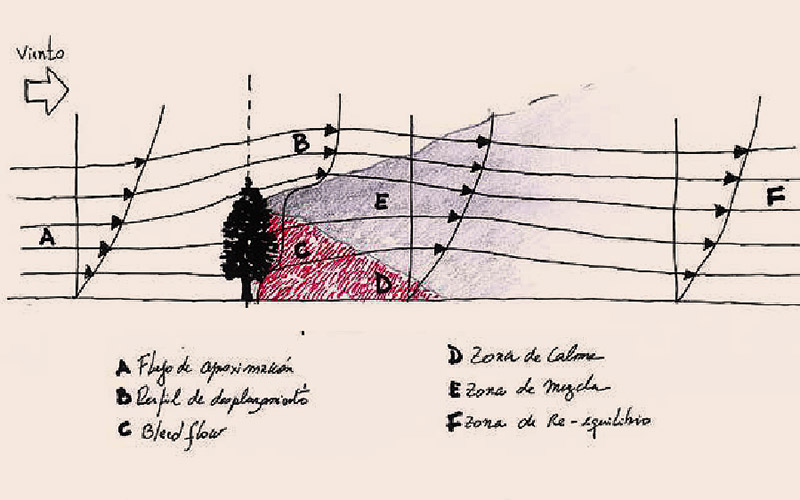 Viento
B
A
E
F
C
D
A Flujo de aproximación
B Perfil de desplazamiento
C Bleed flow
D Zona de Calma
E Zona de Mezcla
F Zona de Re-equilibrio